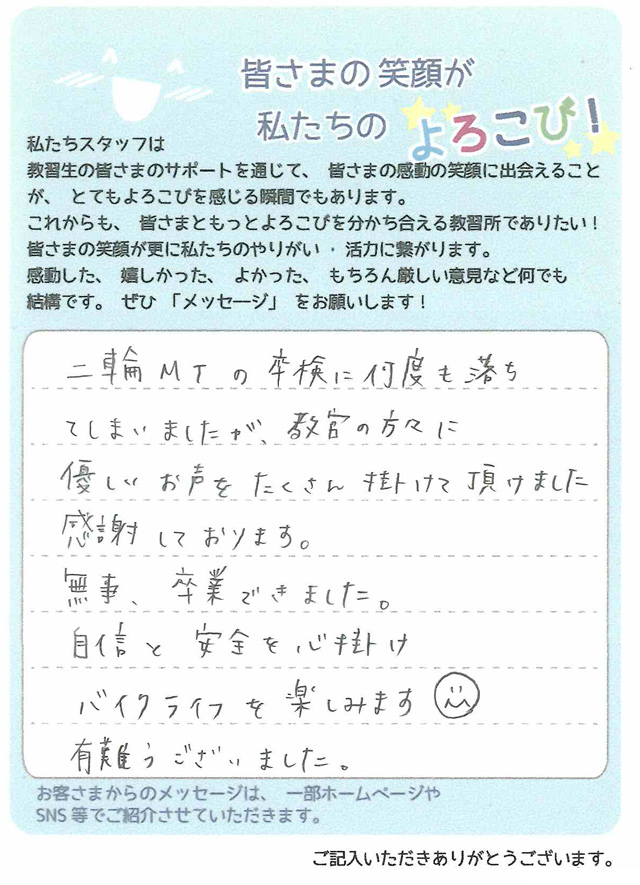 皆さまの笑顔が
私たちの よろこび！
私たちスタッフは
教習生の皆さまのサポートを通じて、 皆さまの感動の笑顔に出会えること
が、 とてもよろこびを感じる瞬間でもあります。
これからも、 皆さまともっとよろこびを分かち合える教習所でありたい！
皆さまの笑顔が更に私たちのやりがい ・ 活力に繋がります。
感動した、 嬉しかった、 よかった、 もちろん厳しい意見など何でも
結構です。 ぜひ 「メッセージ」 をお願いします！
二輪MTの卒検に何度も落ち
てしまいましたが、教官の方々に
優しいお声をたくさん掛けて頂けました
感謝しております。
無事、卒業できました。
自信と安全を心掛け
バイクライフを楽しみます
有難うございました。
お客さまからのメッセージは、 一部ホームページや
SNS 等でご紹介させていただきます。
ご記入いただきありがとうございます。